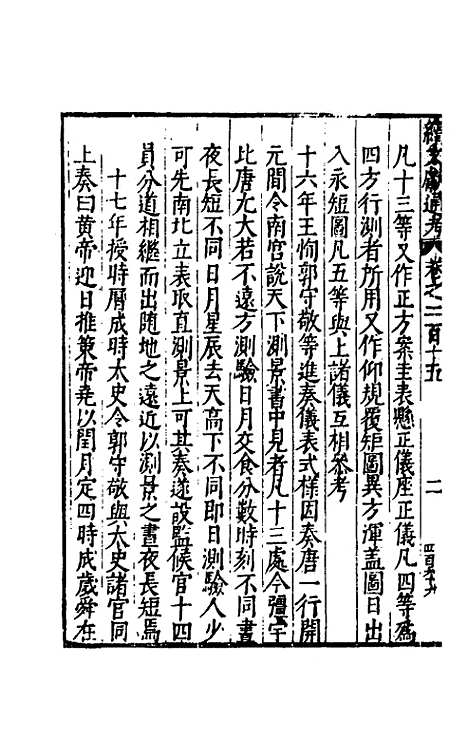 續文獻通考 卷之二百十五 二
凡十三等又作正方案圭表懸正儀座正儀凡四等爲
四方行測者所用又作仰規覆矩圖異方渾蓋圖日出
入永短圖凡五等與上諸儀互相參考
十六年王恂郭守敬等進奏儀表式樣因奏唐一行開
元間令南宮說天下測景書中見者凡十三處今疆宇
比唐尤大若不遠方測驗日月交食分數時刻不同晝
夜長短不同日月星辰去天高下不同即日測驗人少
可先南北立表取直測景上可其奏遂設監候官一十四
員分道相繼而出隨地之遠近以測景之晝夜長短焉
十七年授時曆成時太史令郭守敬與太史諸官同
上奏曰黃帝迎日推策帝堯以閏月定四時成歲舜在